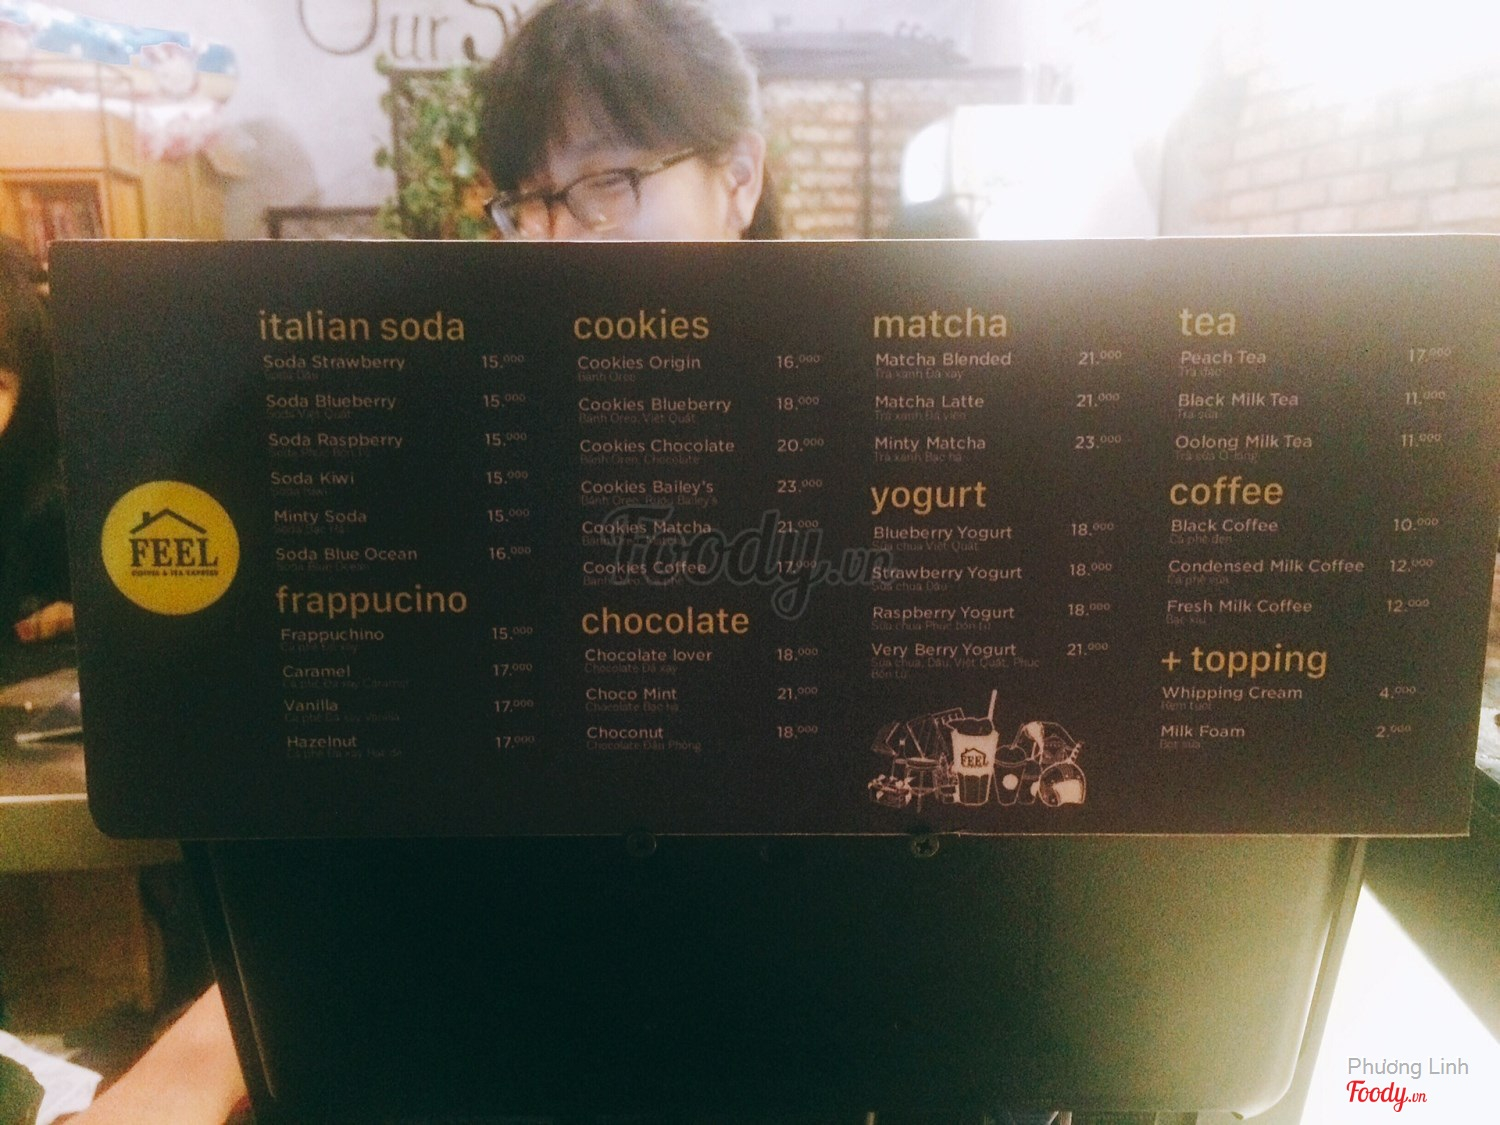 Our S
FEEL
COFFEE & TEA EXPRESS
italian soda
Soda Strawberry 15.000
Soda Dâu
Soda Blueberry 15.000
Soda Việt Quất
Soda Raspberry 15.000
Soda Phúc Bồn Tử
Soda Kiwi 15.000
Soda Kiwi
Minty Soda 15.000
Soda Bạc Hà
Soda Blue Ocean 16.000
Soda Blue Ocean
frappucino
Frappuchino 15.000
Cà phê Đá xay
Caramel 17.000
Cà phê Đá xay Caramel
Vanilla 17.000
Cà phê Đá xay Vanilla
Hazelnut 17.000
Cà phê Đá xay Hạt dẻ
cookies
Cookies Origin 16.000
Bánh Oreo
Cookies Blueberry 18.000
Bánh Oreo, Việt Quất
Cookies Chocolate 20.000
Bánh Oreo, Chocolate
Cookies Bailey's 23.000
Bánh Oreo, Rượu Bailey's
Cookies Matcha 21.000
Bánh Oreo, Matcha
Cookies Coffee 17.000
Bánh Oreo, Cà phê
chocolate
Chocolate lover 18.000
Chocolate Đá xay
Choco Mint 21.000
Chocolate Bạc hà
Choconut 18.000
Chocolate Đậu Phộng
matcha
Matcha Blended 21.000
Trà xanh Đá xay
Matcha Latte 21.000
Trà xanh Đá viên
Minty Matcha 23.000
Trà xanh Bạc hà
yogurt
Blueberry Yogurt 18.000
Sữa chua Việt Quất
Strawberry Yogurt 18.000
Sữa chua Dâu
Raspberry Yogurt 18.000
Sữa chua Phúc bồn tử
Very Berry Yogurt 21.000
Sữa chua, Dâu, Việt Quất, Phúc
Bồn Tử
FEEL
tea
Peach Tea 17.000
Trà đào
Black Milk Tea 11.000
Trà sữa
Oolong Milk Tea 11.000
Trà sữa Ô long
coffee
Black Coffee 10.000
Cà phê đen
Condensed Milk Coffee 12.000
Cà phê sữa
Fresh Milk Coffee 12.000
Bạc xỉu
+ topping
Whipping Cream 4.000
Kem tươi
Milk Foam 2.000
Bọt sữa
Foody.vn
Phương Linh
Foody.vn